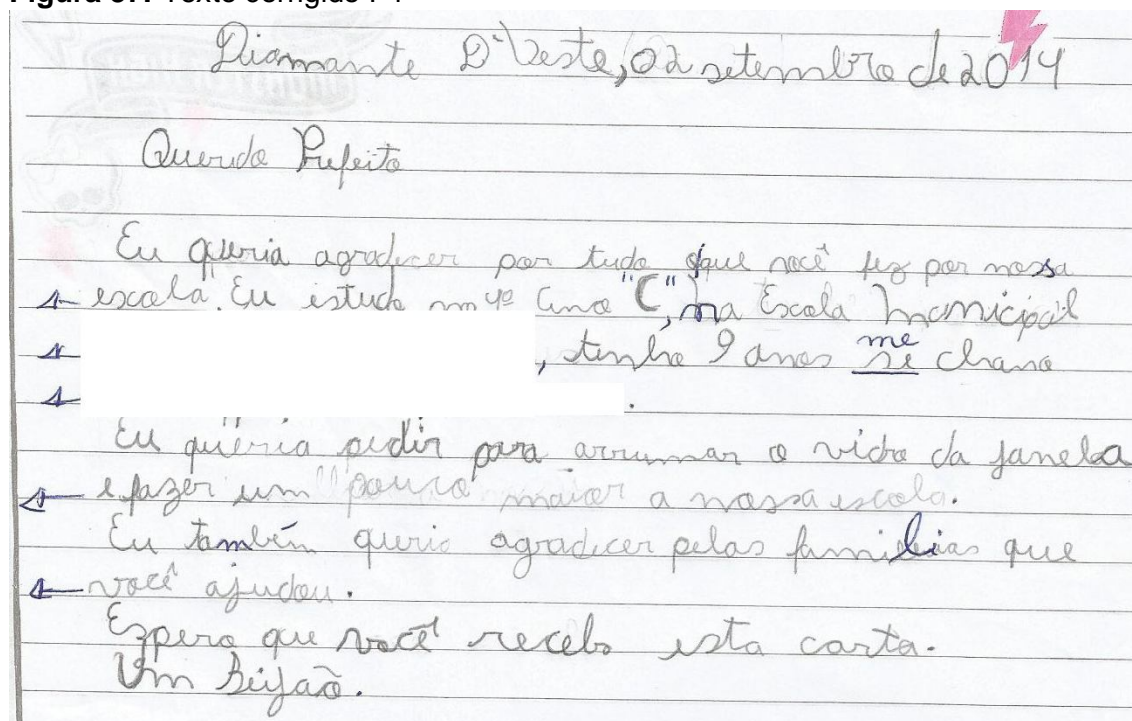 Diamante D'Oeste, 02 setembro de 2014
Querido Prefeito
Eu queria agradecer por tudo que você fez por nossa
escola. Eu estudo no 4º ano "C", na Escola Municipal
, tenho 9 anos me se chamo
.
Eu queria pedir para arrumar o vidro da janela
e fazer um pouco maior a nossa escola.
Eu também queria agradecer pelas famílias que
você ajudou.
Espero que você receba esta carta.
Um beijão.